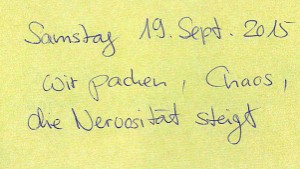 Samstag 19. Sept. 2015
Wir packen, Chaos,
die Nervosität steigt